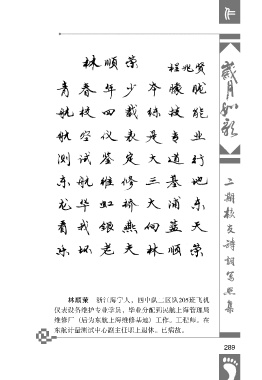 林顺荣
程兆贤
青春年少本朦胧
航校四载练技能
航空仪表是专业
测试鉴定大道行
东航维修三基地
龙华虹桥大浦东
看我银燕向蓝天
冰怀老夫林顺荣
林顺荣 浙江海宁人，四中队二区队205班飞机
仪表设备维护专业学员，毕业分配到民航上海管理局
维修厂（后为东航上海维修基地）工作。工程师。在
东航计量测试中心副主任职上退休。已病故。
岁月如歌
二期校友诗词写照集
289